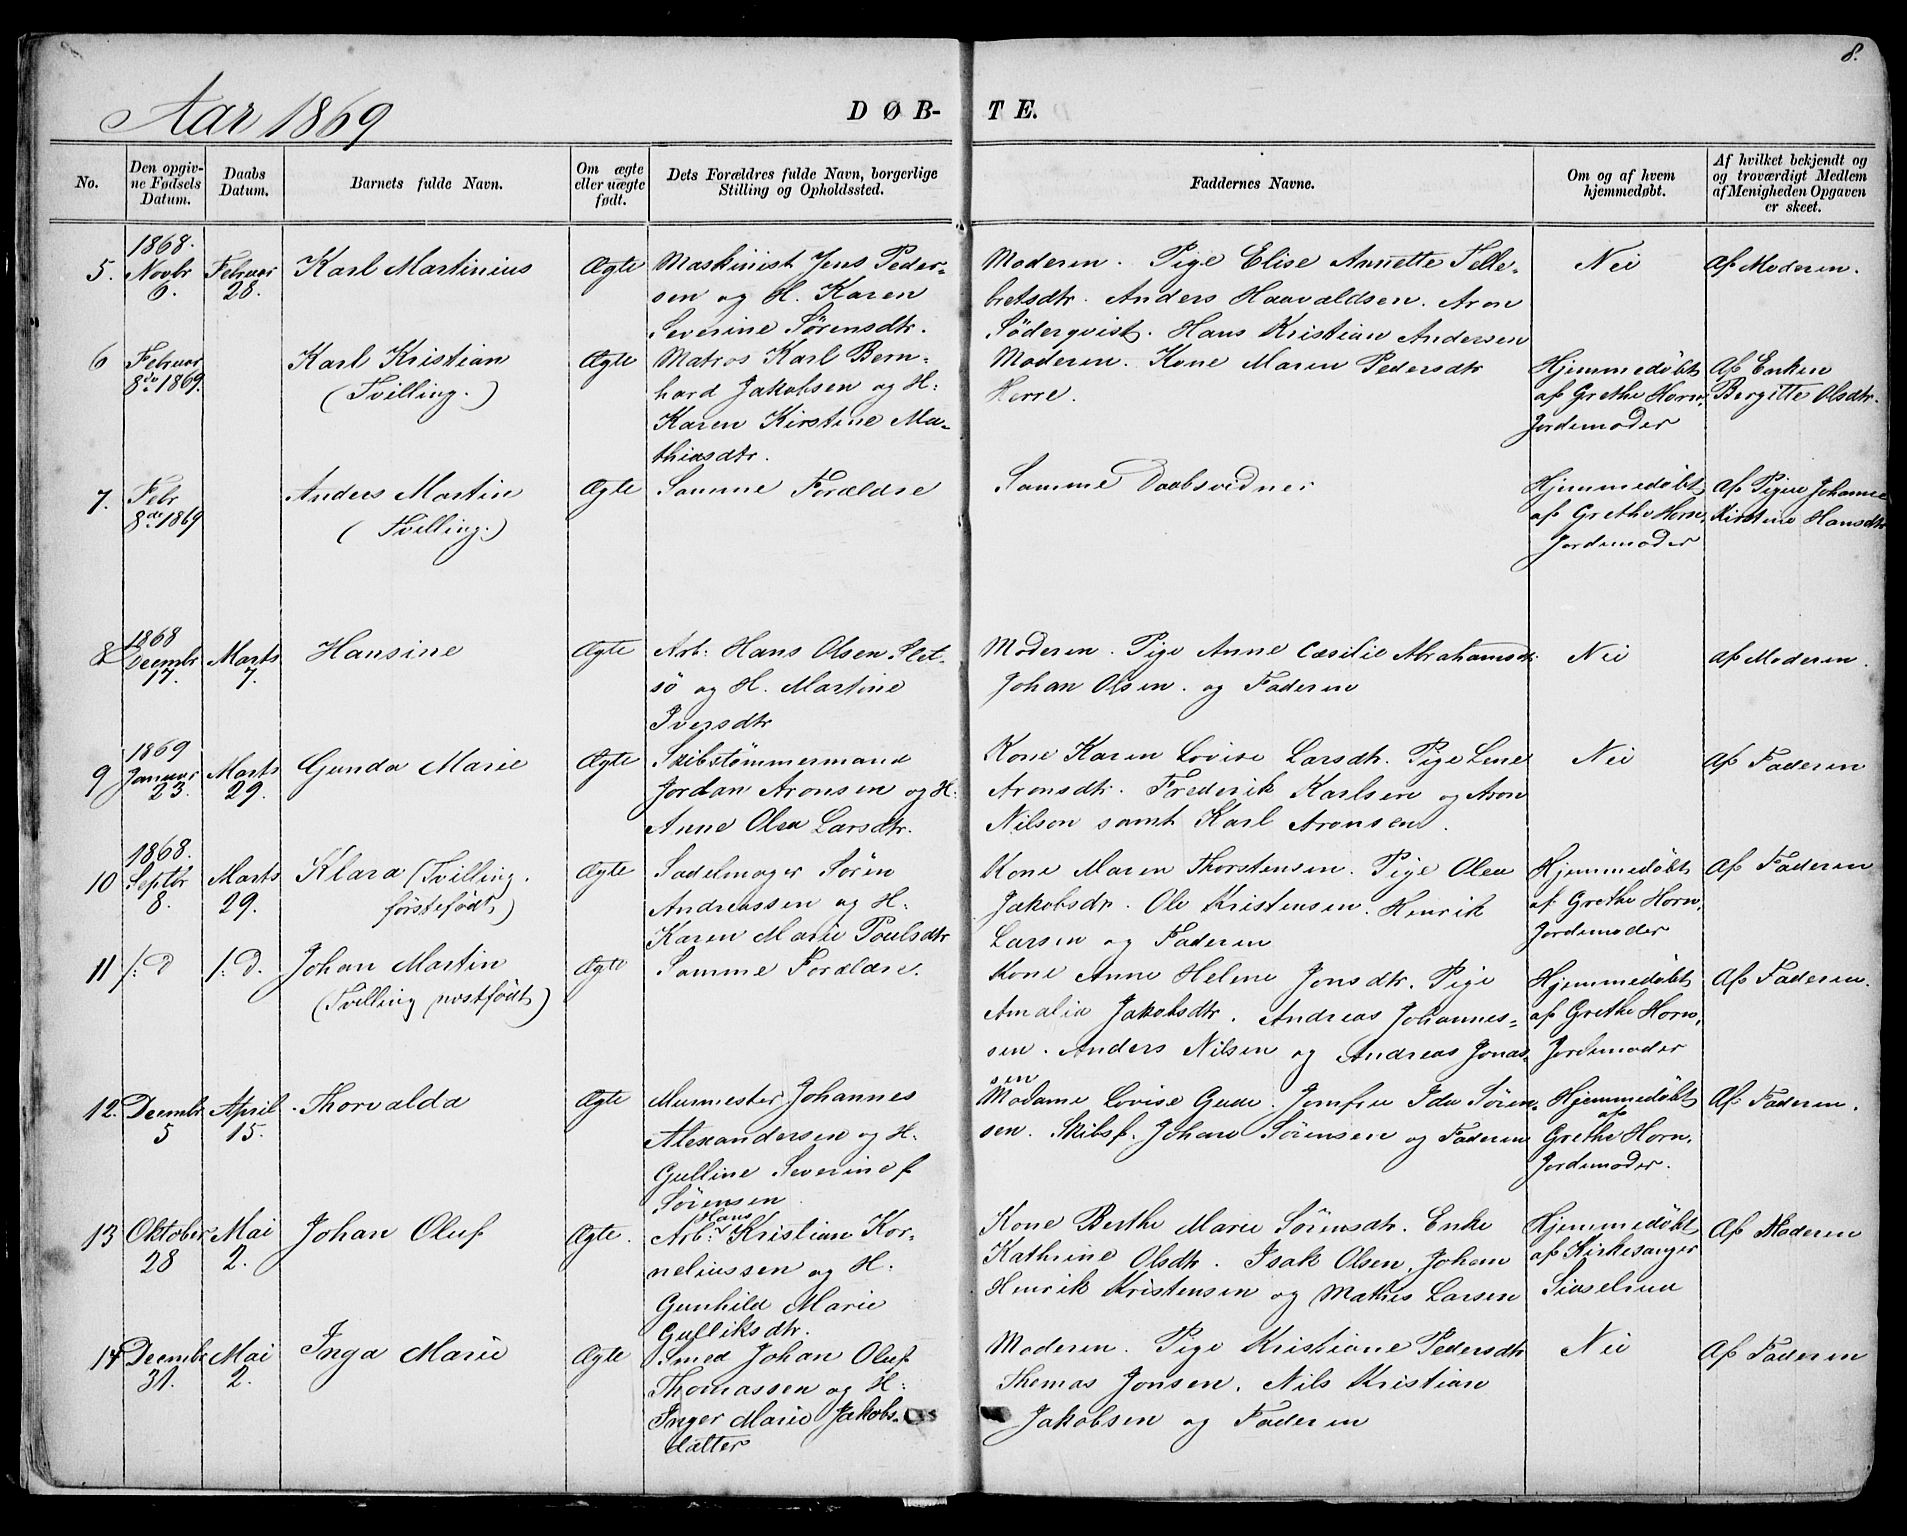 8.
Aar 1869 DØB- TE.
No. | Den opgivne Fødsels Datum. | Daabs Datum. | Barnets fulde Navn. | Om ægte eller uægte født. | Dets Forældres fulde Navn, borgerlige Stilling og Opholdssted. | Faddernes Navne. | Om og af hvem hjemmedøbt. | Af hvilket bekjendt og og troværdigt Medlem af Menigheden Opgaven er skeet.
1868.
5. Novbr Februar Karl Martinius Ægte Maskinist Jens Peder- Moderen. Pige Elise Annette Telle- Nei Af Moderen.
6. 28. sen og H. Karen bretsdtr. Anders Haavaldsen. Aron
Severine Sørensdtr. Söderqvist. Hans Kristian Andersen
6 Februar Karl Kristian Ægte Matros Karl Bern- Moderen. Kone Maren Pedersdtr Hjemmedøbt Af Enken
8de 1869. (Tvilling.) hard Jakobsen og H: Herre. af Grethe Horn, Bergitte Olsdtr.
Karen Kirstine Ma- Jordemoder
thiasdtr.
7. Febr Anders Martin Ægte Samme Forældre Samme Daabsvidner Hjemmedøbt af Pigen Johanne
8de 1869 (Tvilling.) af Grethe Horn, Kirstine Hansdtr
Jordemoder
1868
8 Decembr Marts Hansine Ægte Arb: Hans Olsen Slet- Moderen. Pige Anne Cæsilie Abrahamsdtr Nei af Moderen.
17. 7. sö og H. Martine Johan Olsen. og Faderen
Iversdtr
1869
9 Januar Marts Gunda Marie Ægte Skibstømmermand Kone Karen Lovise Larsdtr. Pige Lene Nei Af Faderen
23. 29. Jordan Aronsen og H: Aronsdtr. Frederik Karlsen og Aron
Anne Olea Larsdtr. Nilson samt Karl Aronsen.
1868.
10 Septbr Marts Klara (Tvilling. Ægte Sadelmager Sören Kone Maren Thorstensen. Pige Olea Hjemmedøbt Af Faderen
8. 29. førstefødt) Andreassen og H. Jakobsdtr. Ole Kristensen. Henrik af Grethe Horn,
Karen Marie Poulsdtr Larsen og Faderen Jordemoder
11 /: d /: d. Johan Martin Ægte Samme Forældre. Kone Anne Helene Jonsdtr. Pige Hjemmedøbt Af Faderen.
(Tvilling næstfødt) Amalia Jakobsdtr. Andreas Johannes- af Grethe Horn,
sen. Anders Nilsen og Andreas Jonas- Jordemoder
sen
12. Decembr April Thorvalda Ægte Murmester Johannes Madame Lovise Gude. Jomfru Ida Sören- Hjemmedøbt Af Faderen.
5 15. Alexandersen og H. sen. Skibsf. Johan Sörensen og Faderen af
Gulline Severine f Grethe Horn,
Sörensen. Jordemoder.
Hans
13 Oktober Mai Johan Oluf Ægte. Arb: Kristian Kor- Kone Berthe Marie Sörensdtr. Enke Hjemmedøbt Af Moderen
28 2. neliussen og H. Kathrine Olsdtr. Isak Olsen, Johan af Kirkesanger
Gunhild Marie Henrik Kristensen og Mathis Larsen
Gulliksdtr.
14 Decembr Mai Inga Marie Ægte Smed Johan Oluf Moderen. Pige Kristiane Pedersdtr Nei Af Faderen
31. 2. Thomassen og H: Thomas Jonsen. Nils Kristian
Inger Marie Jakobs- Jakobsen og Faderen
datter